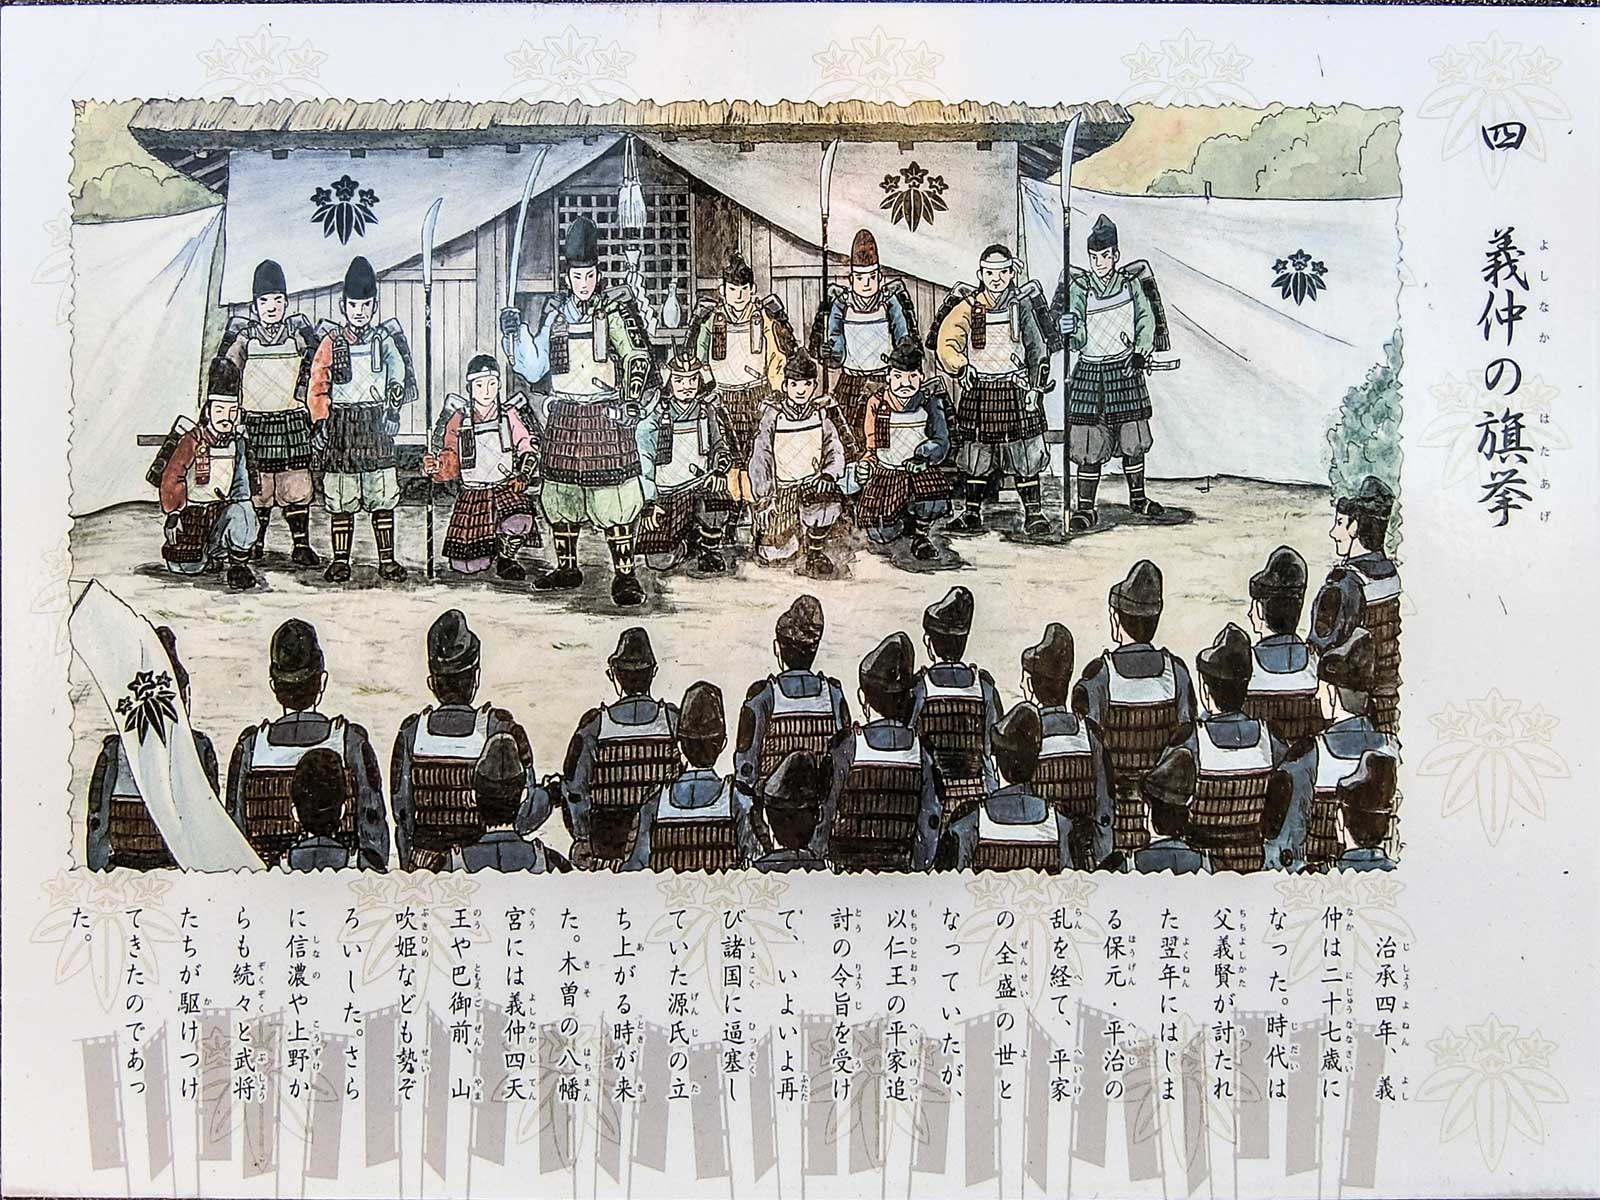 四　義仲の旗挙
よしなか　はたあげ
治承四年、義
仲は二十七歳に
なった。時代は
父義賢が討たれ
た翌年にはじま
る保元・平治の
乱を経て、平家
の全盛の世と
なっていたが、
以仁王の平家追
討の令旨を受け
て、いよいよ再
び諸国に逼塞し
ていた源氏の立
ち上がる時が来
た。木曽の八幡
宮には義仲四天
王や巴御前、山
吹姫なども勢ぞ
ろいした。さら
に信濃や上野か
らも続々と武将
たちが駆けつけ
てきたのであっ
た。